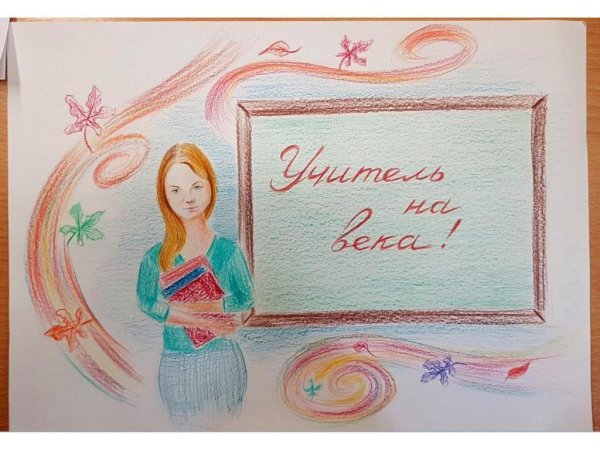 Учитель
на
века!